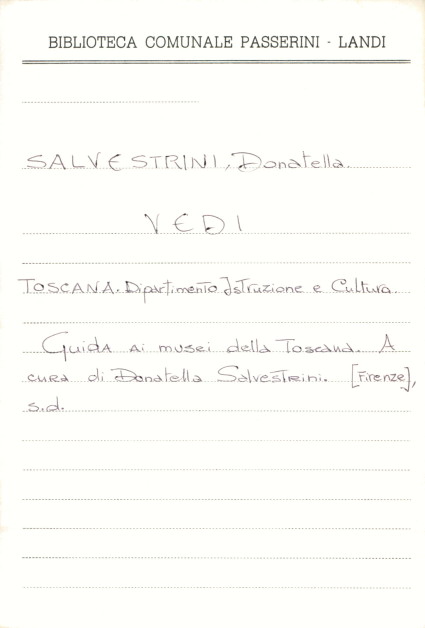 BIBLIOTECA COMUNALE PASSERINI - LANDI
SALVESTRINI, Donatella.
VEDI
TOSCANA. Dipartimento Istruzione e Cultura.
Guida ai musei della Toscana. A
cura di Donatella Salvestrini. [Firenze],
s.d.